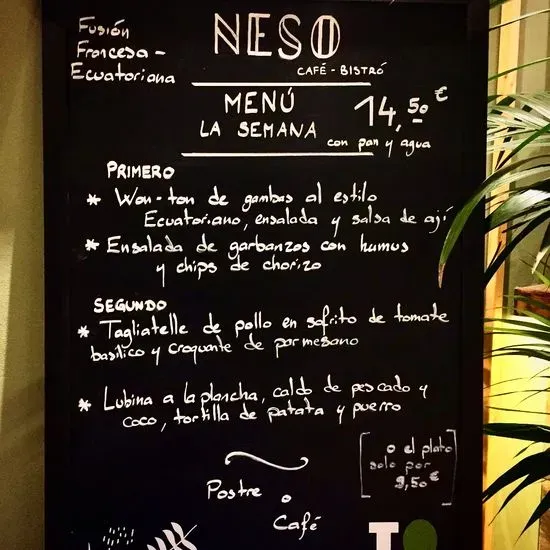 Fusión
Francesa -
Ecuatoriana
NESO
CAFÉ - BISTRÓ
MENÚ
LA SEMANA
14,50 €
con pan y agua
PRIMERO
* Won-ton de gambas al estilo
Ecuatoriano, ensalada y salsa de ají
* Ensalada de garbanzos con humus
y chips de chorizo
SEGUNDO
* Tagliatelle de pollo en sofrito de tomate
basílico y croquante de parmesano
* Lubina a la plancha, caldo de pescado y
coco, tortilla de patata y puerro
[o el plato
solo por
9,50 €]
Postre o
Café